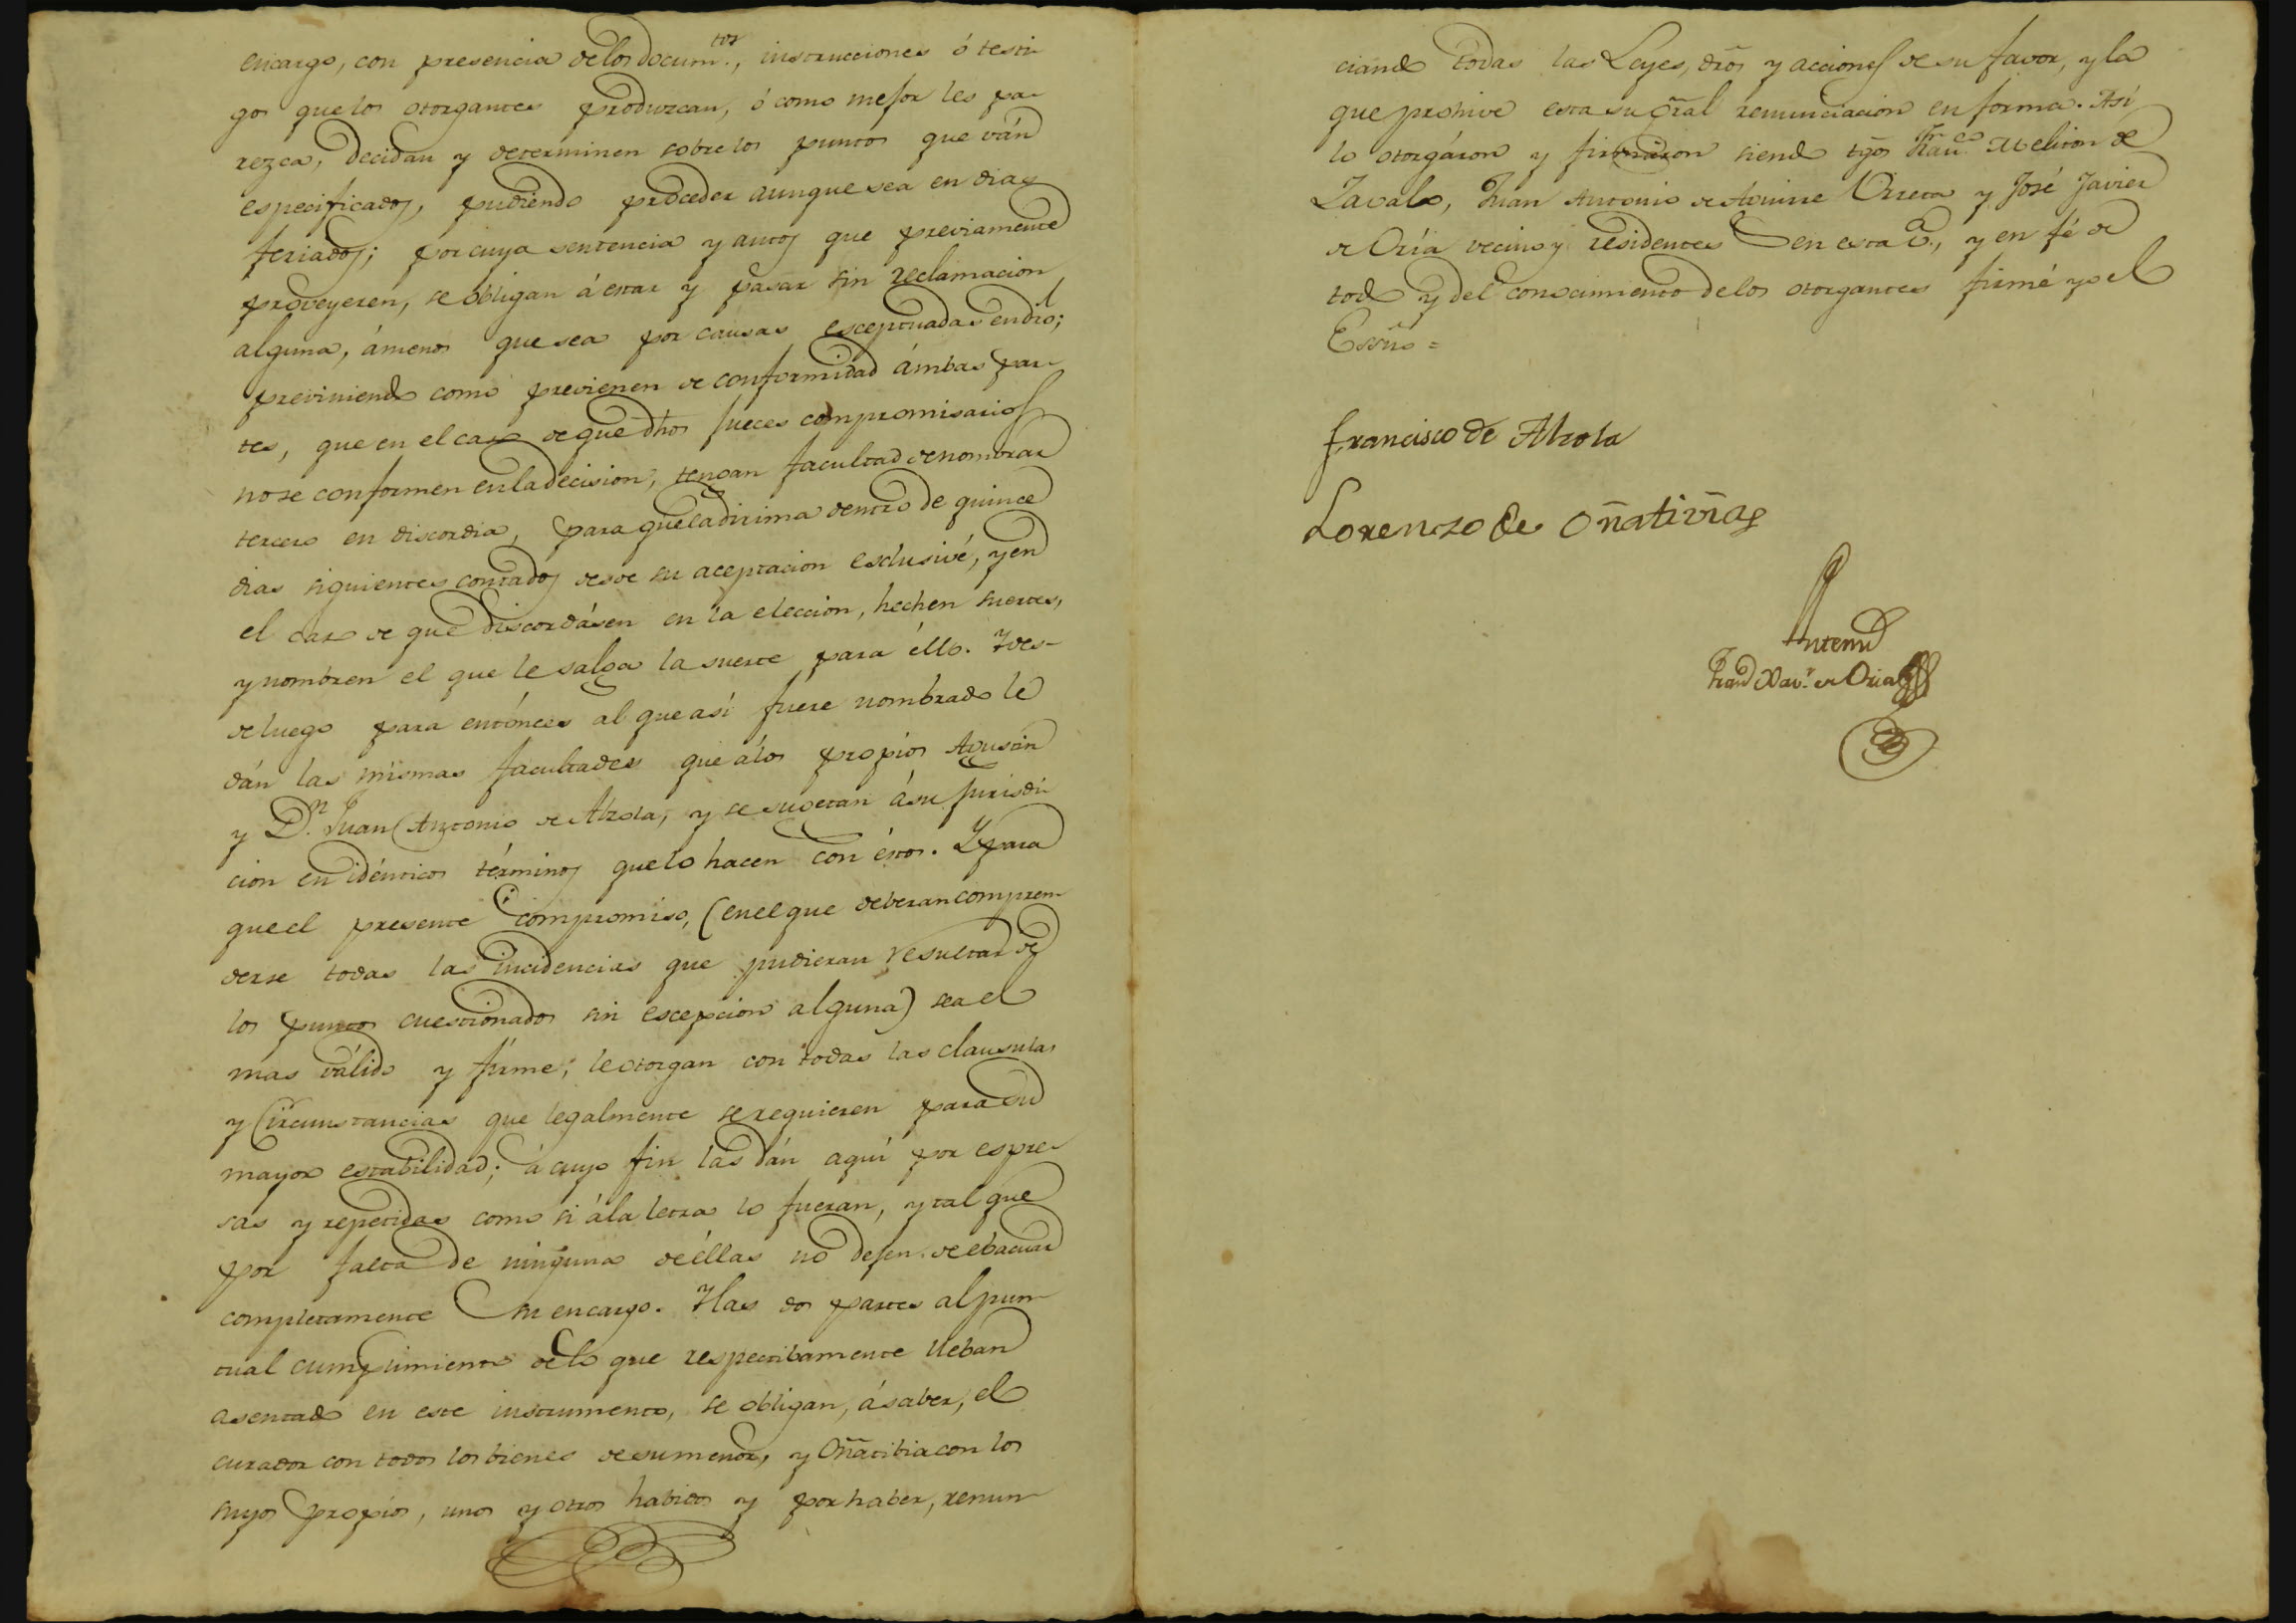 encargo, con presencia de los docum.tos, instrucciones ó testi-
gos que los otorgantes produzcan, ó como mejor les pa-
rezca, decidan y determinen sobre los puntos que ván
especificados, pudiendo proceder aunque sea en dias
feriados; por cuya sentencia y autos que previamente
proveyeren, se obligan á estar y pasar sin reclamacion
alguna, ámenos que sea por causas esceptuadas en dro;
previniendo como previenen de conformidad ámbas par-
tes, que en el caso de que dhos Jueces compromisarios
no se conformen en la decision, tengan facultad de nombrar
tercero en discordia, para que la dirima dentro de quince
dias siguientes contados desde su aceptacion esclusivé, y en
el caso de que discordásen en la eleccion, hechen suertes,
y nombren el que le salga la suerte para éllo. Y des-
de luego para entónces al que así fuere nombrado le
dán las mismas facultades que álos propios Agustin
y D.n Juan Antonio de Alzola, y se sugetan ásu Jurisdi-
cion en idénticos términos que lo hacen con éstos. Y para
que el presente compromiso, (en el que deberan compren-
derse todas las incidencias que pudieran resultar de
los puntos cuestionados sin escepcion alguna) sea el
mas válido y firme; le otorgan con todas las clausulas
y Circunstancias que legalmente se requieren para su
mayor estabilidad; á cuyo fin las dán aquí por espre-
sas y repetidas como si ála letra lo fueran, y tal que
por falta de ninguna de éllas no dejen de ebacuar
completamente su encargo. Y las dos partes al pun-
tual cumplimiento de lo que respectibamente lleban
asentado en este instrumento, se obligan, ásaber, el
curador con todos los bienes de su menor, y Oñatibia con los
suyos propios, unos y otros habidos y por haber, renun-
ciando todas las Leyes, dros y acciones de su favor, y la
que prohive esta su gral renunciacion en forma. Así
lo otorgáron y firmáron siendo tgos Fran.co Meliton de
Zavala, Juan Antonio de Aguirre Urreta y José Javier
de Oría vecinos y residentes en esta V., y en fé de
todo y del conocimiento de los otorgantes firmé yo el
Essno =
Francisco de Alzola
Lorenzo de Oñativia
Antemi
Xav.r de Oria